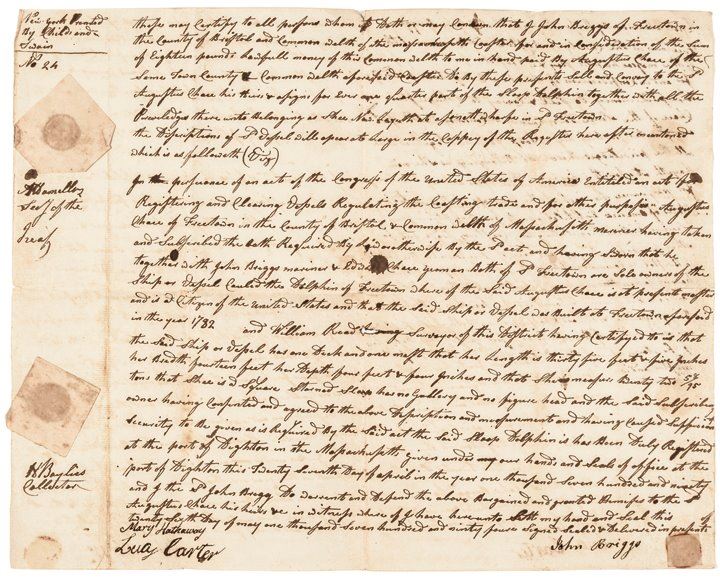 New York Printed
By Child and
Swain
No 24
these may Certify to all persons whom it Doth or may Concern that I John Briggs of Freetown in
the County of Bristol and Common welth of the massachusetts Coaster for and in Consideration of the Sum
of Eighteen pounds lawfull money of this Common welth to me in hand paid By Augustus Chace of the
Same Town County & Common welth aforesaid Coaster Do By these presents Sell and Convey to the Sd
Augustus Chace his heirs & asigns for Ever one quarter part of the Sloop Dolphin together with all the
Priveledges there unto Belonging as Shee Now Layeth at wharfe in Sd Freetown
the Discriptions of Sd Vessel will apear at large in the Coppey of the Register here after mentioned
which is as followeth (Viz)
In persuance of an act of the Congress of the United States of America Entitled an act for
Registering and Clearing Vesels Regulating the Coasting trade and for other purposes Augustus
Chace of Freetown in the County of Bristol & Common welth of Massachusetts mariner having taken
and Subscribed the oath Required By Said act and having Sworn that he
together with John Briggs mariner & Chace yeoman Both of Sd Freetown are Sole owners of the
Ship or Vessel Called the Dolphin of Freetown where of the Said Augustus Chace is at present master
and is a Citizen of the United States and that the Said Ship or Vessel was Built at Freetown aforesaid
in the year 1782 and William Read Surveyor of this District having Certifyed to us that
the Said Ship or Vesel has one Deck and one mast that her Length is thirty five feet & five Inches
her Bredth fourteen feet her Depth four feet & four Inches and that Shee mesures twenty two
tons that Shee is a Square Starned Sloop has no Gallery and no figure head and the Said Subscribing
owner having Consented and agreed to the above Discription and mesurement and having Caused Sufficient
Security to Be given as is Required By the Said act the Said Sloop Dolphin is has Been Duly Registered
at the port of Dighton in the Massachusetts given under our hands and Seals of office at the
port of Dighton this Twenty Seventh Day of april in the year one thousand Seven hundred and ninety
and I the Sd John Briggs Do warrent and Defend the above Bargained and granted Premises to the Sd
Augustus Chace his heirs &c in witness where of I have here unto Sett my hand and Seal this
twenty Sixth Day of may one thousand Seven hundred and ninety four Signed Seal'd & Delivered in presents of
Mary Hathaway
Lucy Carter
John Briggs
AHamelton
Secy of the
Treasy
H Baylies
Collector